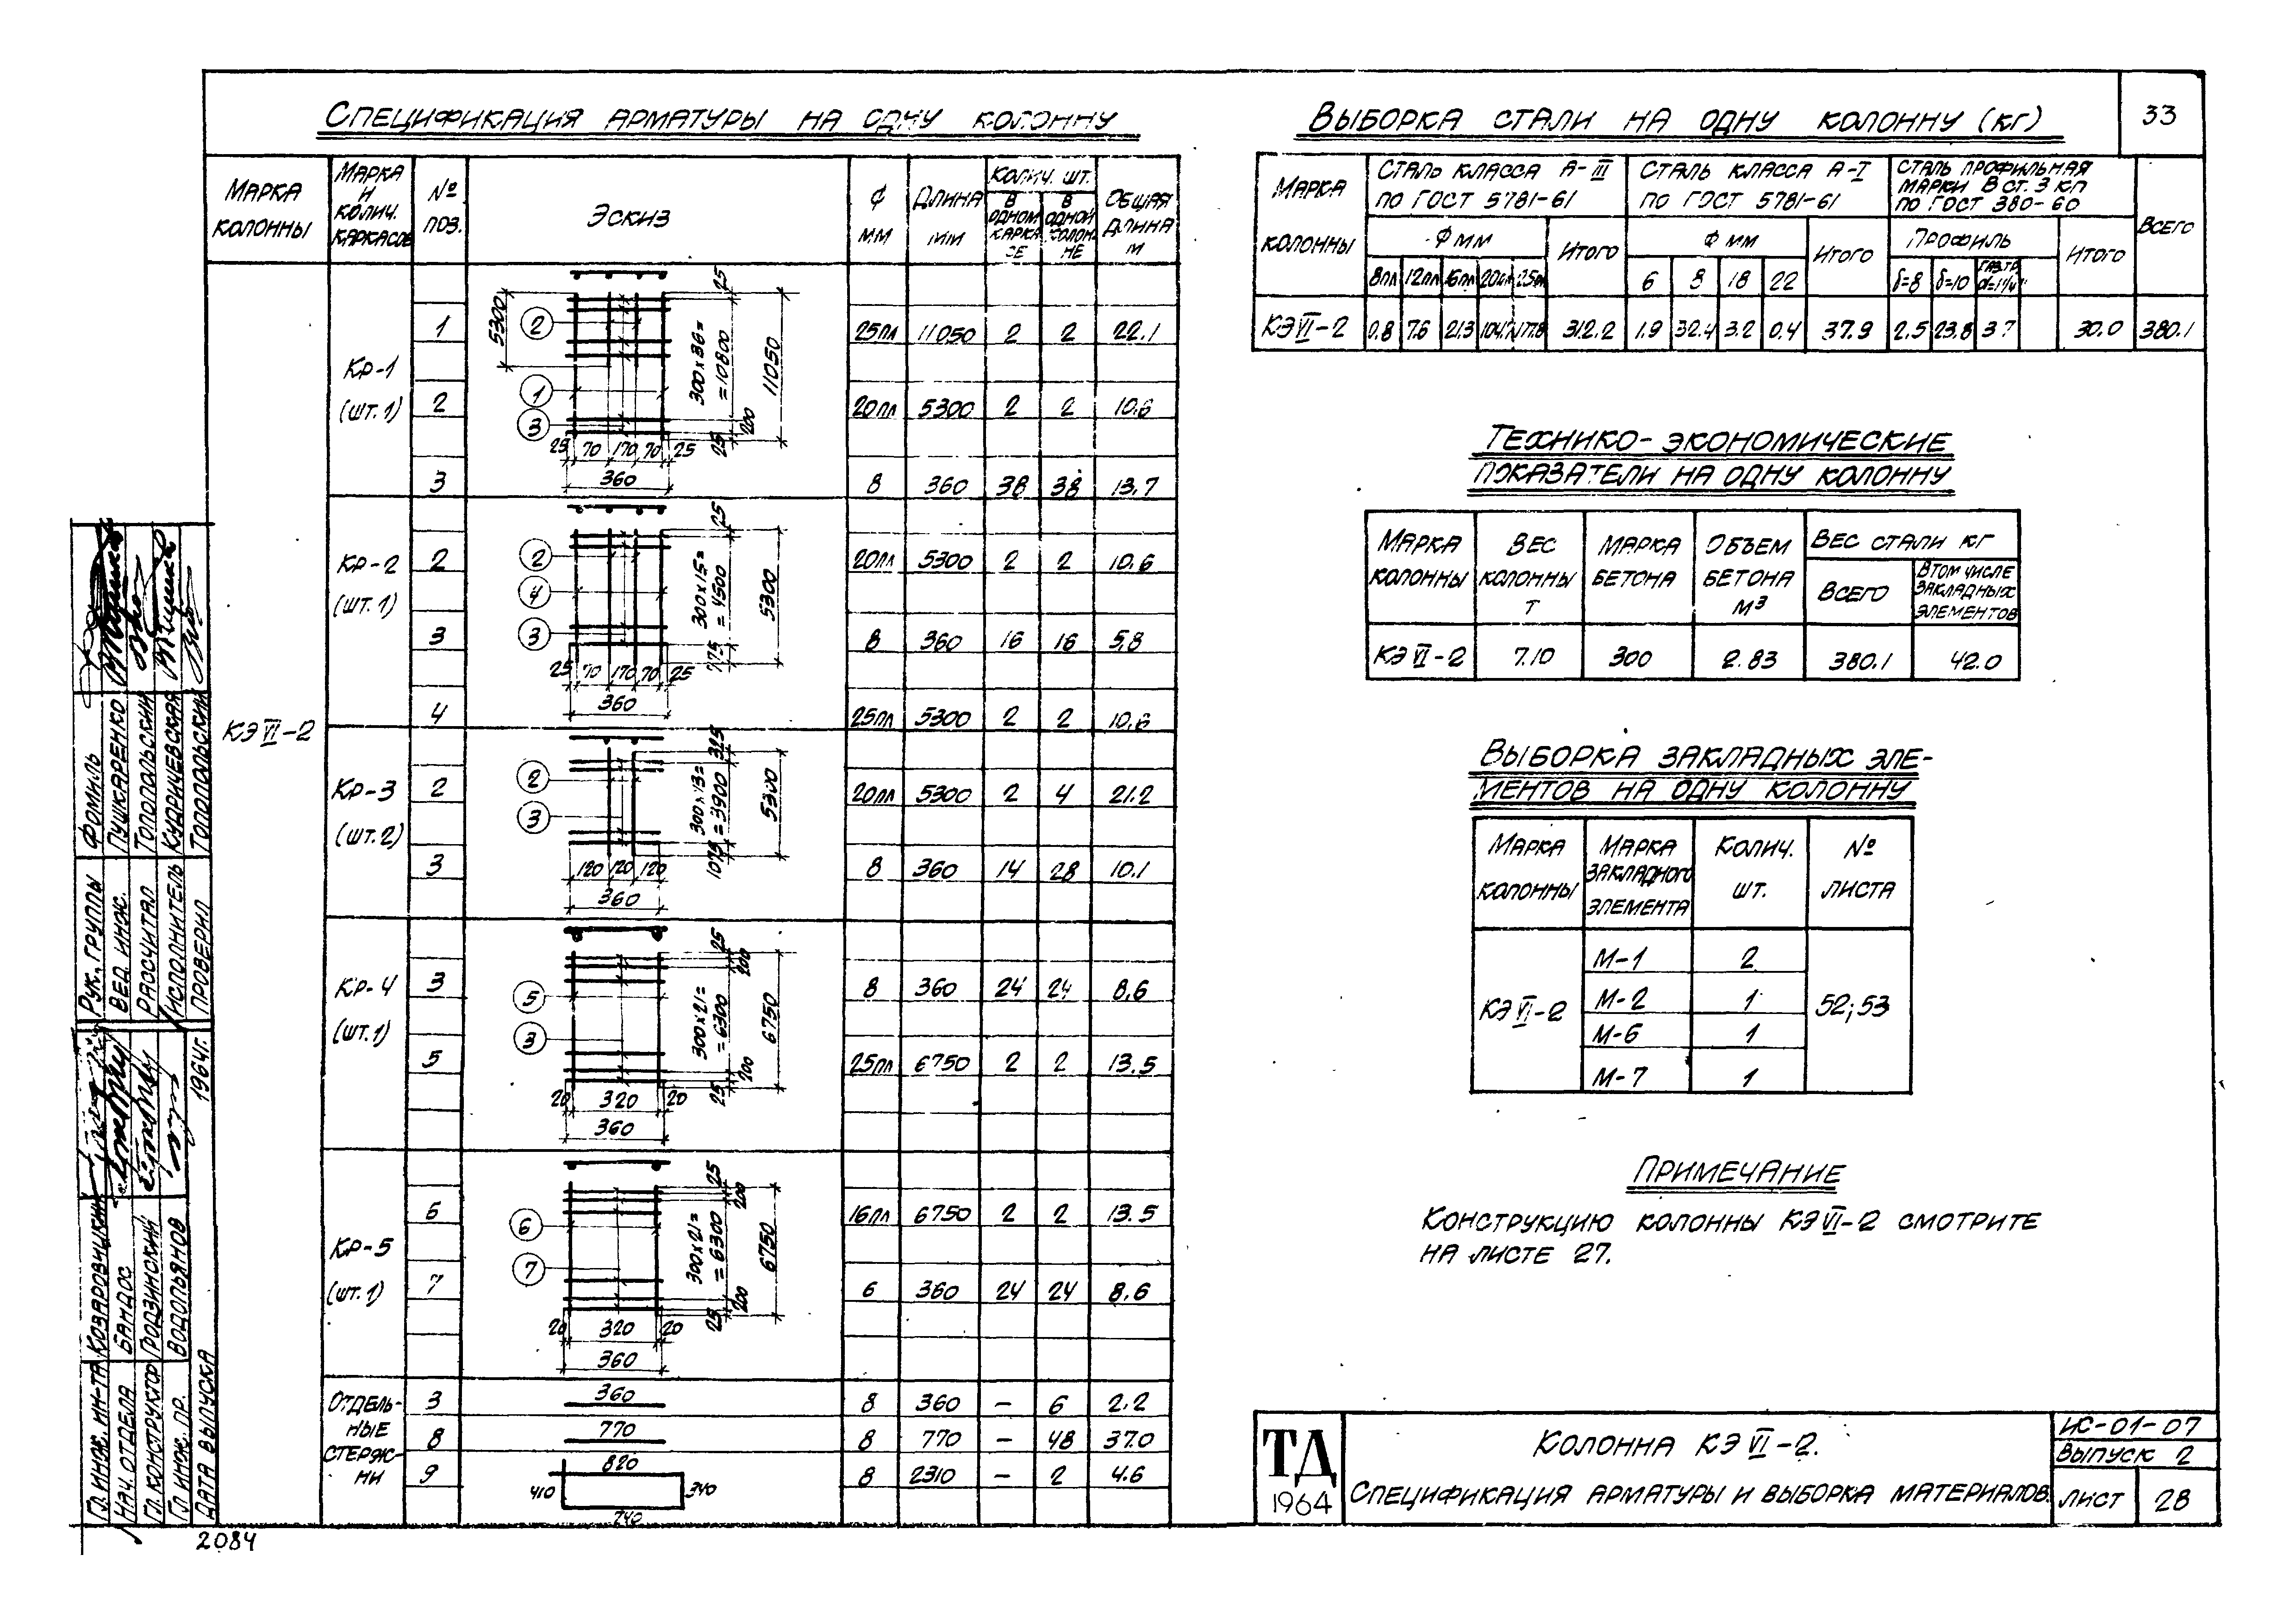 33
Спецификация арматуры на одну колонну
Марка колонны
Марка и колич. каркасов
№ поз.
Эскиз
Ф мм
Длина мм
Колич. шт.
В одном каркасе
В одной колонне
Общая длина м
КЭ VI-2
Кр-1 (шт. 1)
1 25пл 11050 2 2 22.1
2 20пл 5300 2 2 10.6
3 8 360 38 38 13.7
5300 2 1 3 25 300×36= =10800 11050 200 25
25 70 170 70 25
360
Кр-2 (шт. 1)
2 20пл 5300 2 2 10.6
3 8 360 16 16 5.8
4 25пл 5300 2 2 10.6
2 4 3 25 300×15= =4500 5300 775
25 70 170 70 25
360
Кр-3 (шт. 2)
2 20пл 5300 2 4 21.2
3 8 360 14 28 10.1
2 3 325 300×13= =3900 5300 1075
120 120 120
360
Кр-4 (шт. 1)
3 8 360 24 24 8.6
5 25пл 6750 2 2 13.5
5 3 25 200 300×21= =6300 6750 200 25
20 320 20
360
Кр-5 (шт. 1)
6 16пл 6750 2 2 13.5
7 6 360 24 24 8.6
6 7 25 200 300×21= =6300 6750 200 25
20 320 20
360
Отдельные стержни
3 360 8 360 – 6 2.2
8 770 8 770 – 48 37.0
9 820 410 340 740 8 2310 – 2 4.6
Выборка стали на одну колонну (кг)
Марка колонны
Сталь класса А-III по ГОСТ 5781-61
Сталь класса А-I по ГОСТ 5781-61
Сталь профильная марки В ст. 3 кп по ГОСТ 380-60
Всего
Ф мм Итого Ф мм Итого Профиль Итого
8пл 12пл 16пл 20пл 25пл 6 8 18 22 δ=8 δ=10
КЭ VI-2 0.8 7.6 21.3 104.7 177.8 312.2 1.9 32.4 3.2 0.4 37.9 2.5 23.8 3.7 30.0 380.1
Технико-экономические
показатели на одну колонну
Марка колонны
Вес колонны т
Марка бетона
Объем бетона м³
Вес стали кг
Всего
В том числе закладных элементов
КЭ VI-2 7.10 300 2.83 380.1 42.0
Выборка закладных эле-
ментов на одну колонну
Марка колонны
Марка закладного элемента
Колич. шт.
№ листа
КЭ VI-2
М-1 2
М-2 1
М-6 1
М-7 1
52; 53
Примечание
Конструкцию колонны КЭ VI-2 смотрите
на листе 27.
ТД
1964
Колонна КЭ VI-2.
Спецификация арматуры и выборка материалов.
ИС-01-07
Выпуск 2
Лист 28
Рук. группы Фомиль
Вед. инж. Пушкаренко
Рассчитал Топольский
Исполнитель Кудричевская
Проверил Топольский
Гл. инж. ин-та Козаровицкий
Нач. отдела Бандос
Гл. конструктор Гродзинский
Гл. инж. пр. Водопьянов
Дата выпуска 1964г.
2084